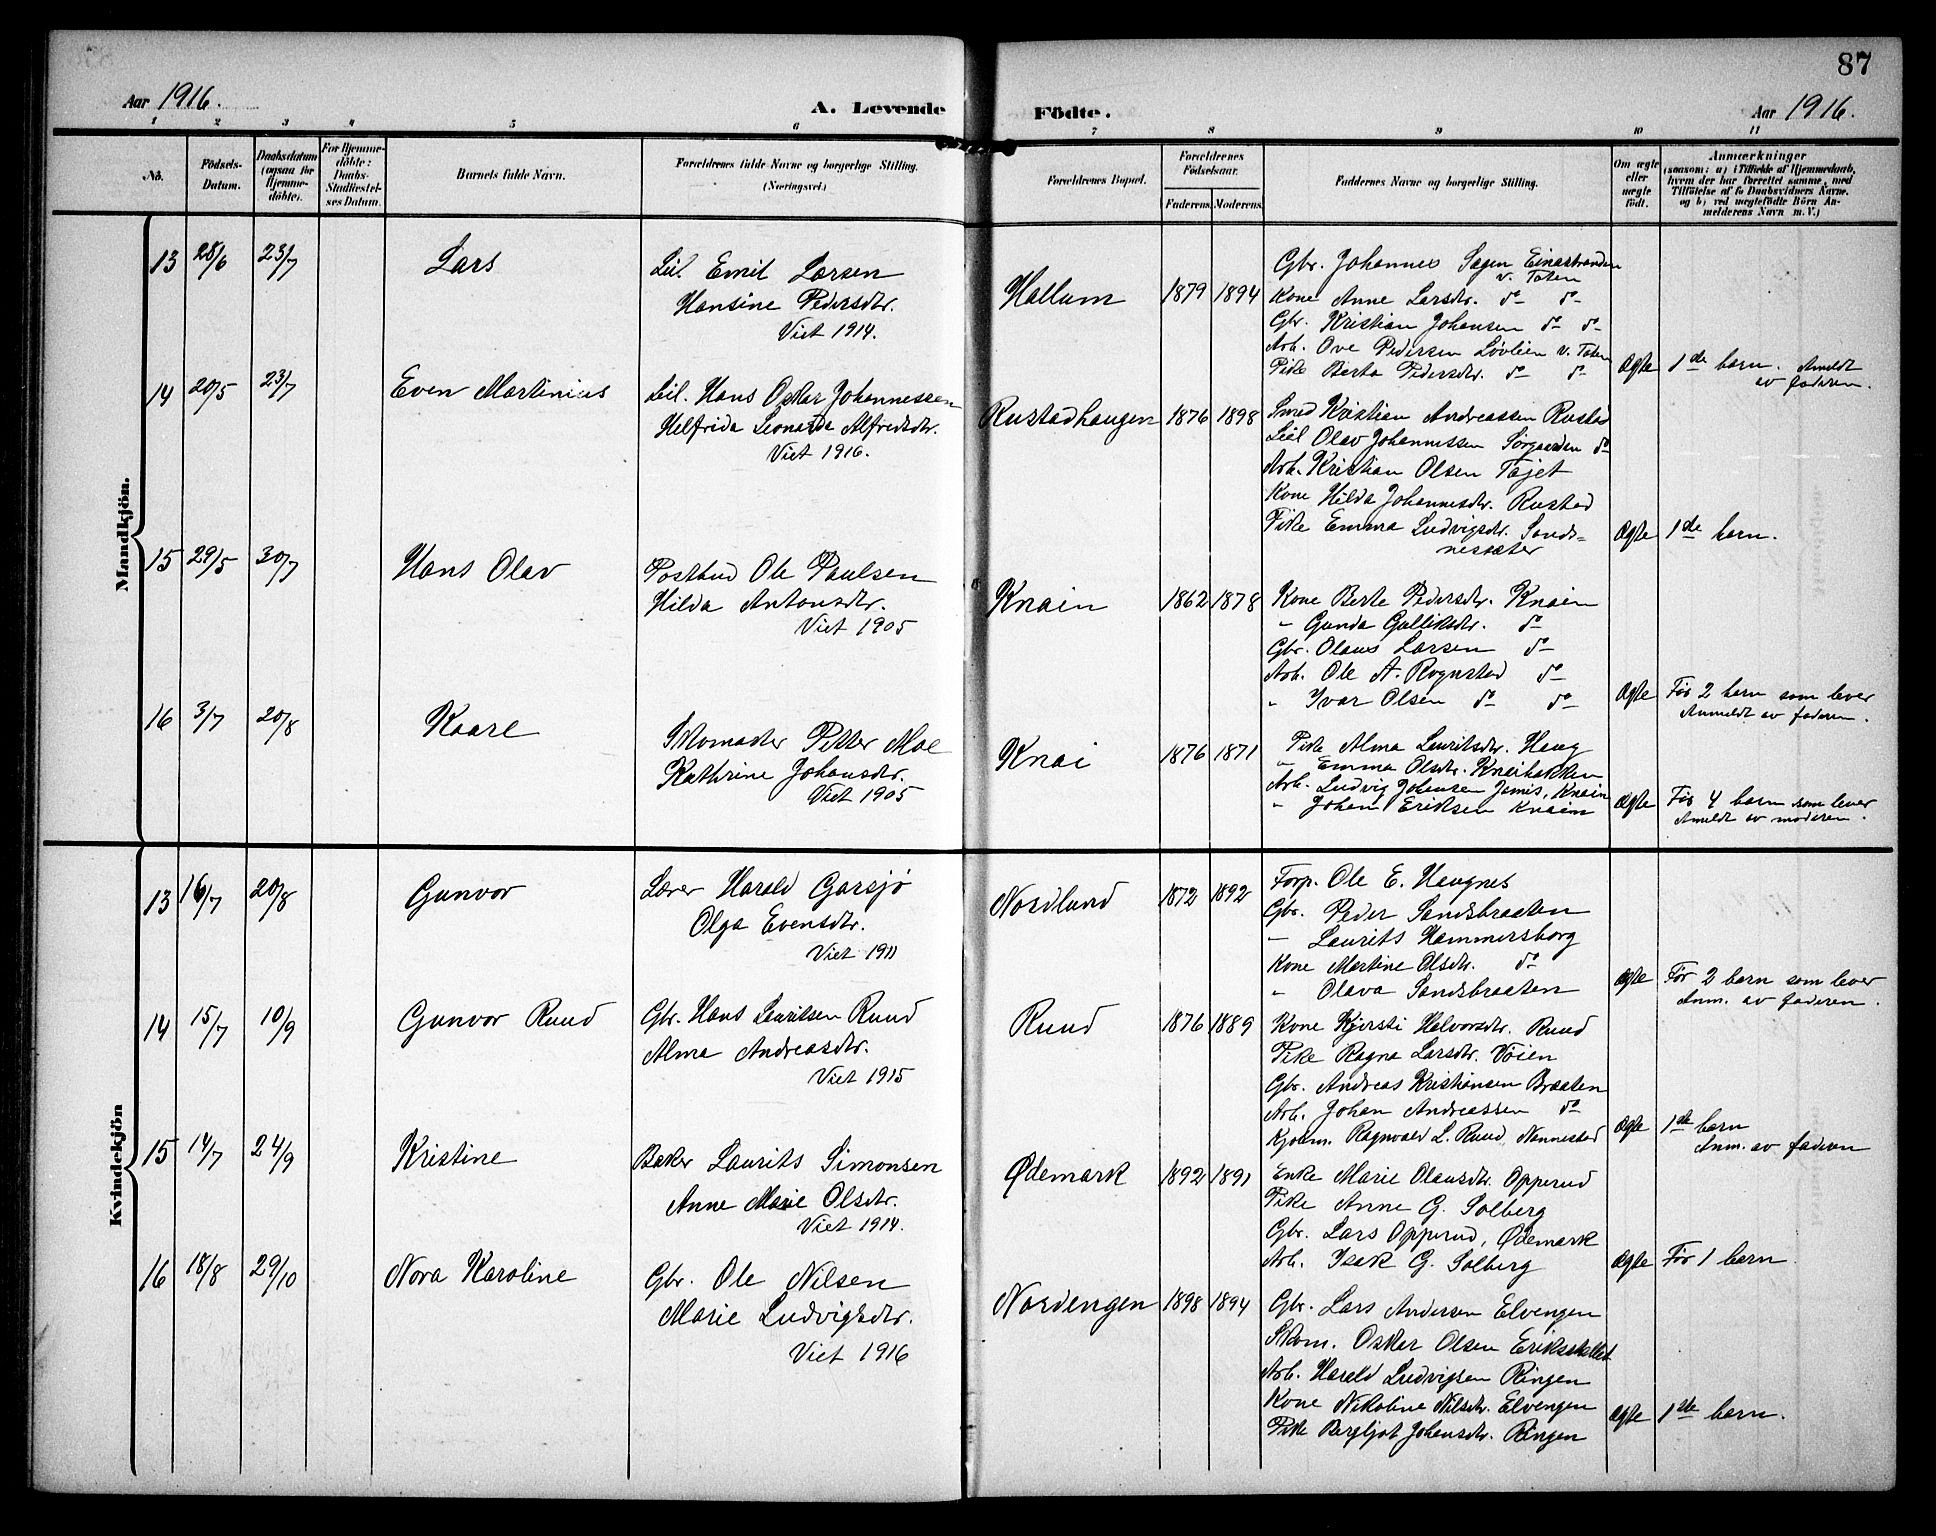 87
Aar 1916.
A. Levende Födte.
Aar 1916.
1 2 3 4 5 6 7 8 9 10 11
No. Födsels-Datum. Daabsdatum (ogsaa for Hjemmedöbte). For Hjemmedöbte: Daabs-Stadfæstelses Datum. Barnets fulde Navn. Forældrenes fulde Navne og borgerlige Stilling. (Næringsvei.) Forældrenes Bopæl. Forældrenes Födselsaar. Faderens. Moderens. Faddernes Navne og borgerlige Stilling. Om ægte eller uægte födt. Anmærkninger (saasom: a) i Tilfælde af Hjemmedaab, hvem der har forrettet samme, med Tilföielse af to Daabsvidners Navne, og b) ved uægtefödte Börn Anmelderens Navn m. V.)
Mandkjön.
13 28/6 23/7 Lars
Leil. Emil Larsen
Hansine Pedersdtr.
Viet 1914.
Hallum 1879 1894
Gbr. Johannes Sagen Einastranden
v. Toten
Kone Anne Larsdtr. do do
Gbr. Kristian Johansen do do
Arb. Ove Pedersen Løvlien v. Toten
Pike Berta Pedersdtr. do do
Ægte 1de barn. Anmeldt
av faderen.
14 20/5 23/7 Even Martinius
Leil. Hans Oskar Johannessen
Helfrida Leonarda Alfredsdtr.
Viet 1916.
Rustadhaugen 1876 1898
Smed Kristian Andreassen Rustad
Leil Olav Johannessen Sørgaarden do
Arb. Kristian Olsen Tajet
Kone Hilda Johannesdtr. Rustad
Pike Emma Ludvigsdtr. Sands-
nesæter
Ægte 1de barn.
15 29/5 30/7 Hans Olav
Postbud Ole Paulsen
Hilda Antonsdtr.
Viet 1905
Knain 1862 1878
Kone Berte Pedersdtr. Knain
" Gunda Gulliksdtr. do
Gbr. Olaus Larsen do
Arb. Ole A. Rognstad do
" Ivar Olsen do do
Ægte Før 2 barn som lever
Anmeldt av faderen.
16 3/7 20/8 Kaare
Skomaker Petter Moe
Kathrine Johansdtr.
Viet 1905
Knai 1876 1871
Pike Alma Lauritsdtr. Haug
" Emma Olsdtr. Kneibakken
Arb. Ludvig Johansen Knain
" Johan Eriksen Knain
Ægte Før 4 barn som lever
Anmeldt av moderen.
Kvindekjön
13 16/7 20/8 Gunvor
Lærer Harald Garsjø
Olga Evensdtr.
Viet 1911
Nordlund 1872 1892
Forp. Ole E. Haugnes
Gbr. Peder Sandsbraaten
" Laurits Hammersborg
Kone Martine Olsdtr. do
" Olava Sandsbraaten
Ægte Før 2 barn som lever
Anm. av faderen.
14 15/7 10/9 Gunvor Ruud
Gbr. Hans Lauritsen Ruud
Alma Andreasdtr.
Viet 1915
Ruud 1876 1889
Kone Kjersti Halvorsdtr. Ruud
Pike Ragna Larsdtr. Vøien
Gbr. Andreas Kristiansen Braaten
Arb. Johan Andreassen do
Kjøbm. Ragnvald L. Ruud, Nannestad
Ægte 1ste barn
Anm. av faderen
15 14/7 24/9 Kristine
Baker Laurits Simonsen
Anne Marie Olsdtr.
Viet 1914.
Ødemark 1892 1891
Enke Marie Olausdtr. Opperud
Pike Anne G. Solberg
Gbr. Lars Opperud, Ødemark
Arb. Isak G. Solberg
Ægte Før 1 barn.
16 18/8 29/10 Nora Karoline
Gbr. Ole Nilsen
Marie Ludvigsdtr.
Viet 1916
Nordengen 1898 1894
Gbr. Lars Andersen Elvengen
Skom. Oskar Olsen
Arb. Harald Ludvigsen Ringen
Kone Nikoline Nilsdtr. Elvengen
Pike Bergljot Johansdtr. Ringen
Ægte 1ste barn.